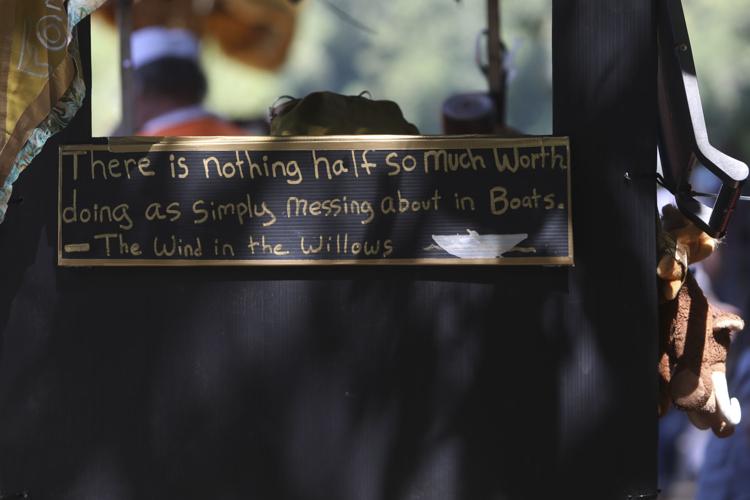 There is nothing half so much Worth
doing as simply messing about in Boats.
- The Wind in the Willows